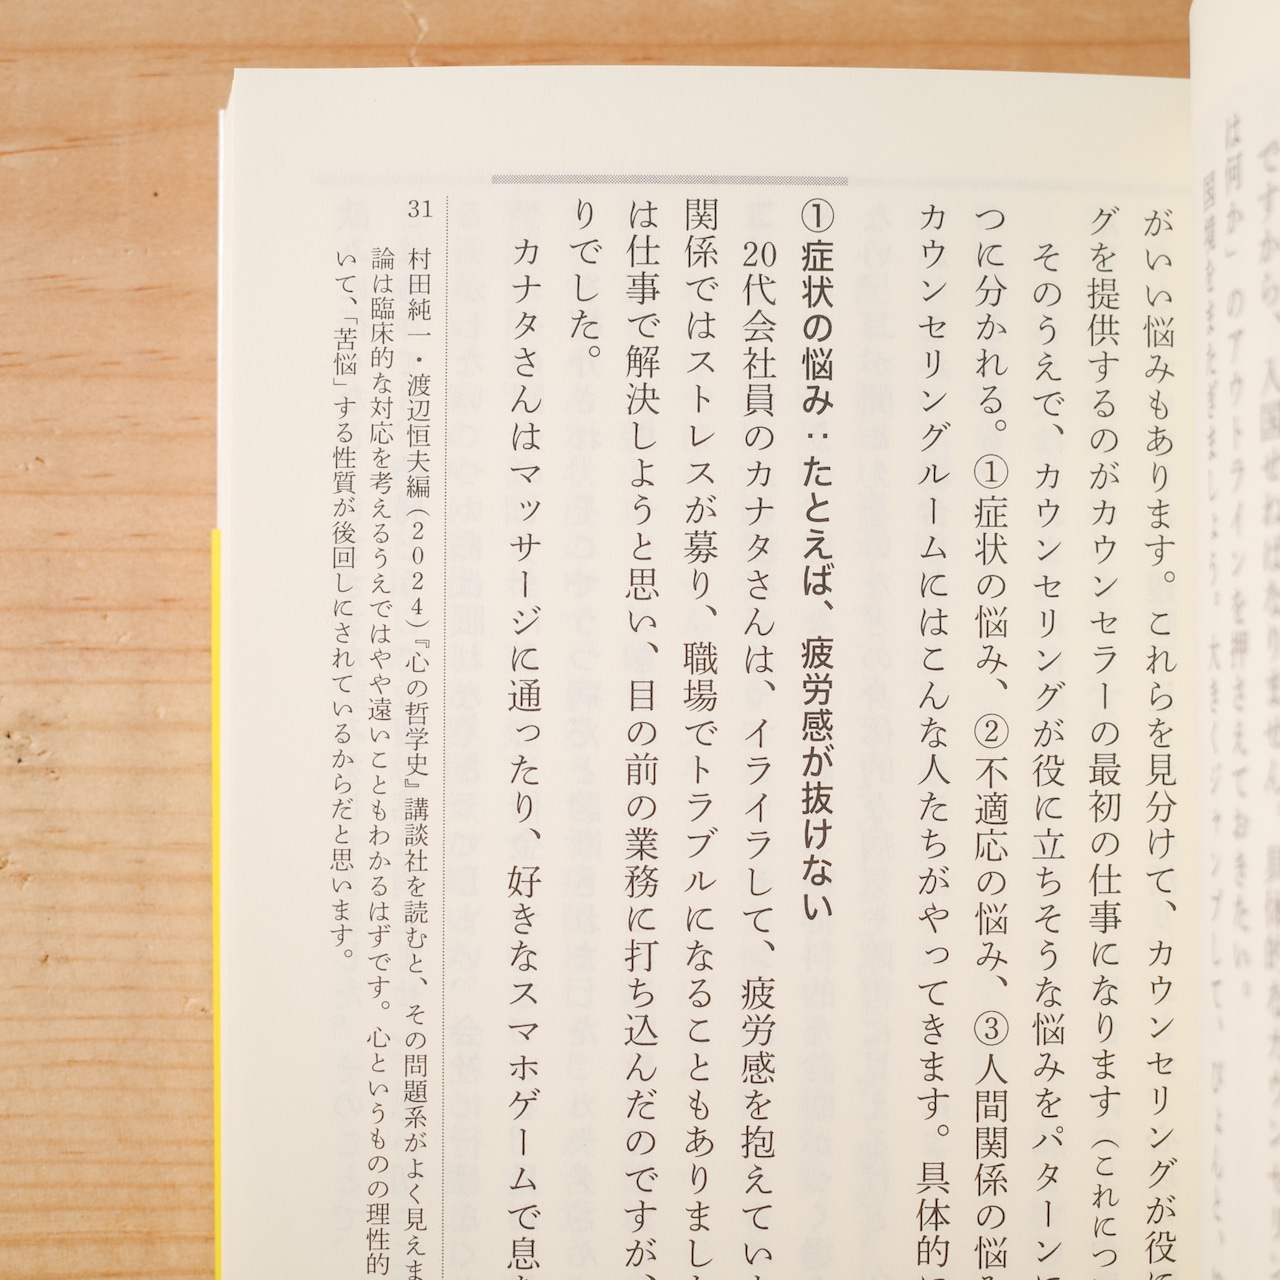 がいい悩みもあります。これらを見分けて、カウンセリングが役に
グを提供するのがカウンセラーの最初の仕事になります（これにつ
そのうえで、カウンセリングが役に立ちそうな悩みをパターンに
つに分かれる。①症状の悩み、②不適応の悩み、③人間関係の悩み
カウンセリングルームにはこんな人たちがやってきます。具体的に
①症状の悩み：たとえば、疲労感が抜けない
20代会社員のカナタさんは、イライラして、疲労感を抱えていた
関係ではストレスが募り、職場でトラブルになることもありまし
は仕事で解決しようと思い、目の前の業務に打ち込んだのですが、
りでした。
カナタさんはマッサージに通ったり、好きなスマホゲームで息
31 村田純一・渡辺恒夫編（2024）『心の哲学史』講談社を読むと、その問題系がよく見えま
論は臨床的な対応を考えるうえではやや遠いこともわかるはずです。心というものの理性的
いて、「苦悩」する性質が後回しにされているからだと思います。